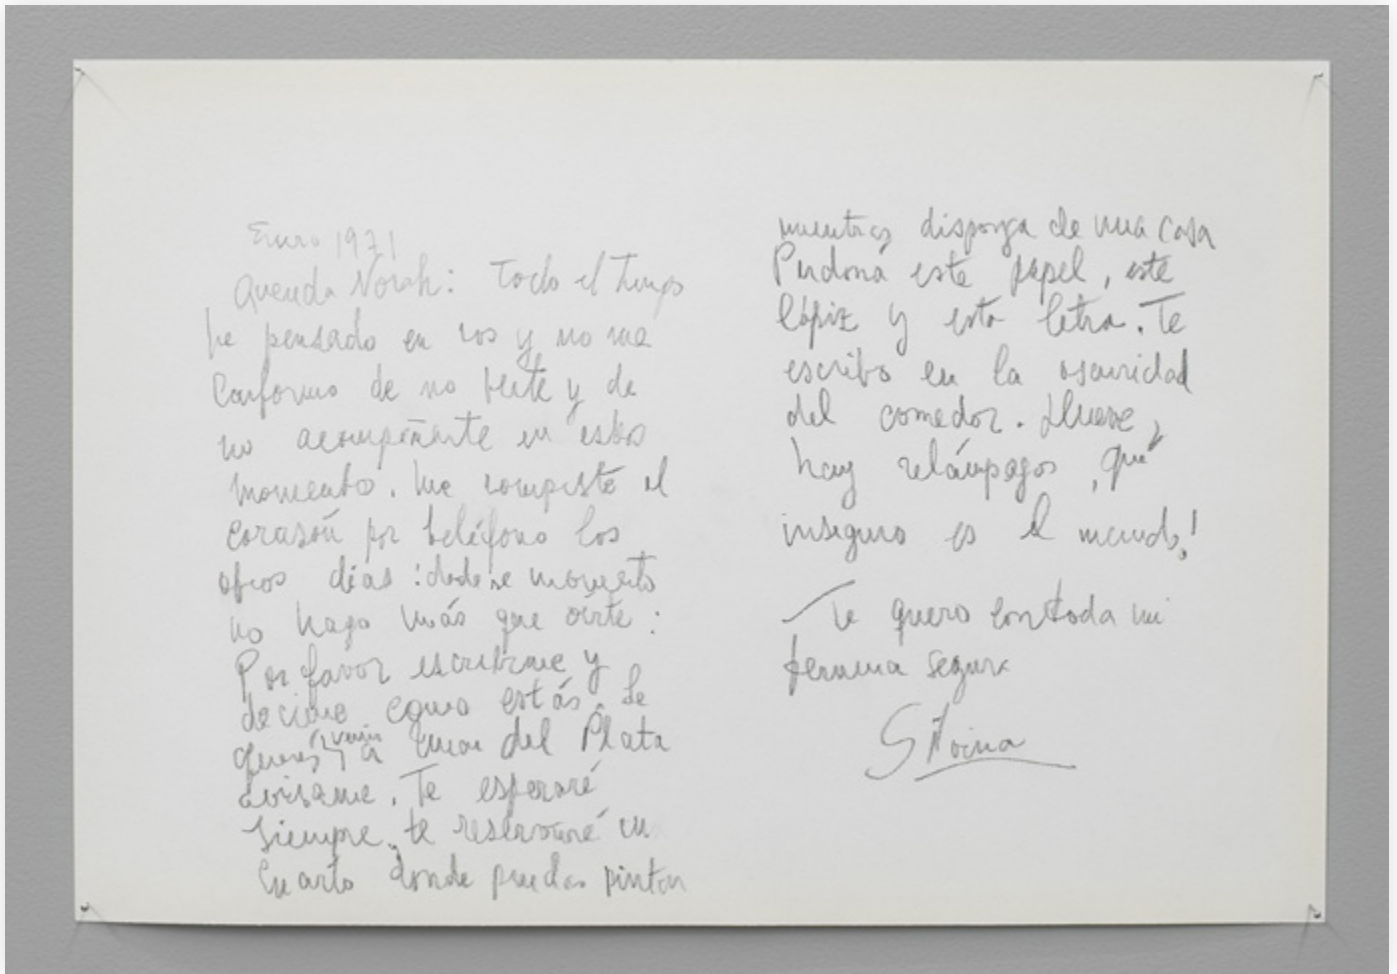 Enero 1971
Querida Norah: Todo el tiempo
he pensado en vos y no me
conformo de no verte y de
no acompañarte en estos
momentos. Me rompiste el
corazón por teléfono los
otros días: desde ese momento
no hago más que oírte:
Por favor escribime y
decime como estás. Se
querés venir a Mar del Plata
avisame. Te esperaré
siempre, te reservaré un
cuarto donde puedas pintar
mientras disponga de una casa
Perdoná este papel, este
lápiz y esta letra. Te
escribo en la oscuridad
del comedor. Llueve,
hay relámpagos, ¡qué
inseguro es el mundo!
Te quiero con toda mi
ternura segura
Silvina